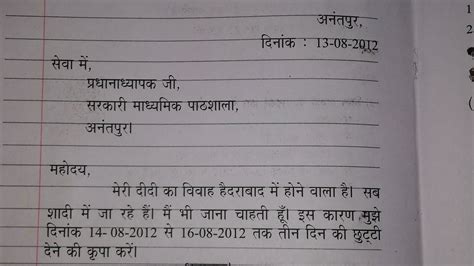 अनंतपुर,
दिनांक : 13-08-2012
सेवा में,
प्रधानाध्यापक जी,
सरकारी माध्यमिक पाठशाला,
अनंतपुर।
महोदय,
मेरी दीदी का विवाह हैदराबाद में होने वाला है। सब
शादी में जा रहे हैं। मैं भी जाना चाहती हूँ। इस कारण मुझे
दिनांक 14-08-2012 से 16-08-2012 तक तीन दिन की छुट्टी
देने की कृपा करें।
1
2